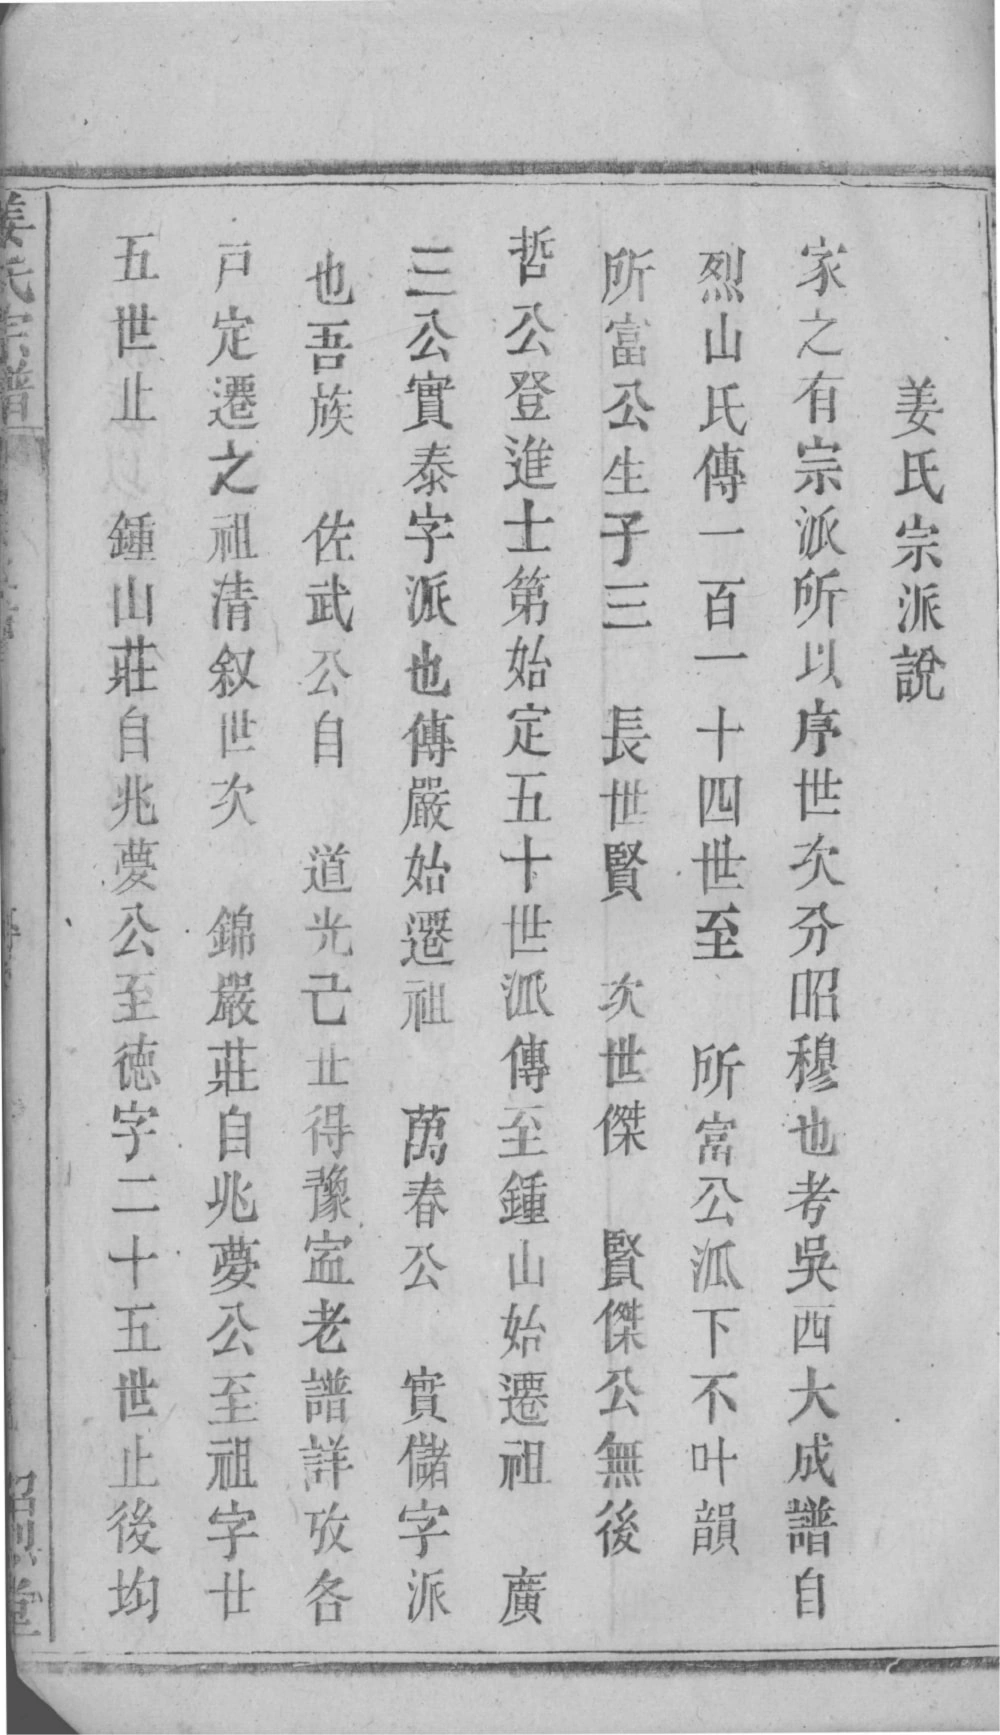 姜氏宗派說
家之有宗派所以序世次分昭穆也考吳西大成譜自
烈山氏傳一百一十四世至 所富公派下不叶韻
所富公生子三 長世賢 次世傑 賢傑公無後
哲公登進士第始定五十世派傳至鍾山始遷祖 廣
三公實泰字派也傳嚴始遷祖 萬春公 實儲字派
也吾族 佐武公自 道光己丗得豫寍老譜詳攷各
戸定遷之祖清叙世次 錦嚴莊自兆夢公至祖字廿
五世止 鍾山莊自兆夢公至徳字二十五世止後均
姜氏宗譜